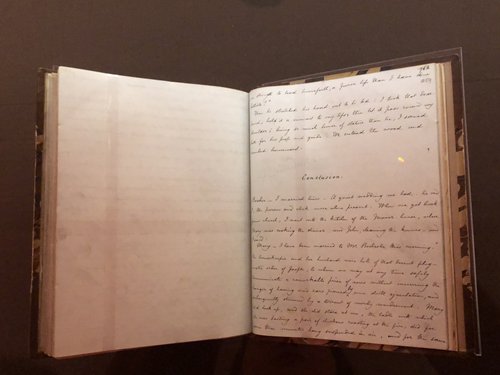 strength to lead henceforth a purer life than I have done
hitherto!"
Then he stretched his hand out to be led: I took that dear
hand, held it a moment to my lips, then let it pass round my
shoulder: being so much lower of stature than he, I served
both for his prop and guide. We entered the wood and
wended homeward.
Conclusion.
Reader – I married him. A quiet wedding we had: he and
I, the parson and clerk were alone present. When we got back
from church, I went into the kitchen of the Manor-house, where
Mary was cooking the dinner, and John, cleaning the knives, and
I said
"Mary – I have been married to Mr. Rochester this morning."
The housekeeper and her husband were both of that decent phleg-
matic order of people, to whom one may at any time safely
communicate a remarkable piece of news without incurring the
danger of having one's ears pierced by some shrill ejaculation, and
subsequently stunned by a torrent of wordy wonderment. Mary
did look up, and she did stare at me, the ladle with which
she was basting a pair of chickens roasting at the fire, did for
some three minutes hang suspended in air, and for the same